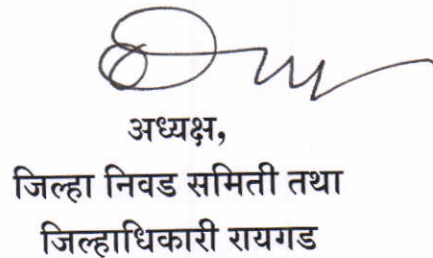 अध्यक्ष,
जिल्हा निवड समिती तथा
जिल्हाधिकारी रायगड